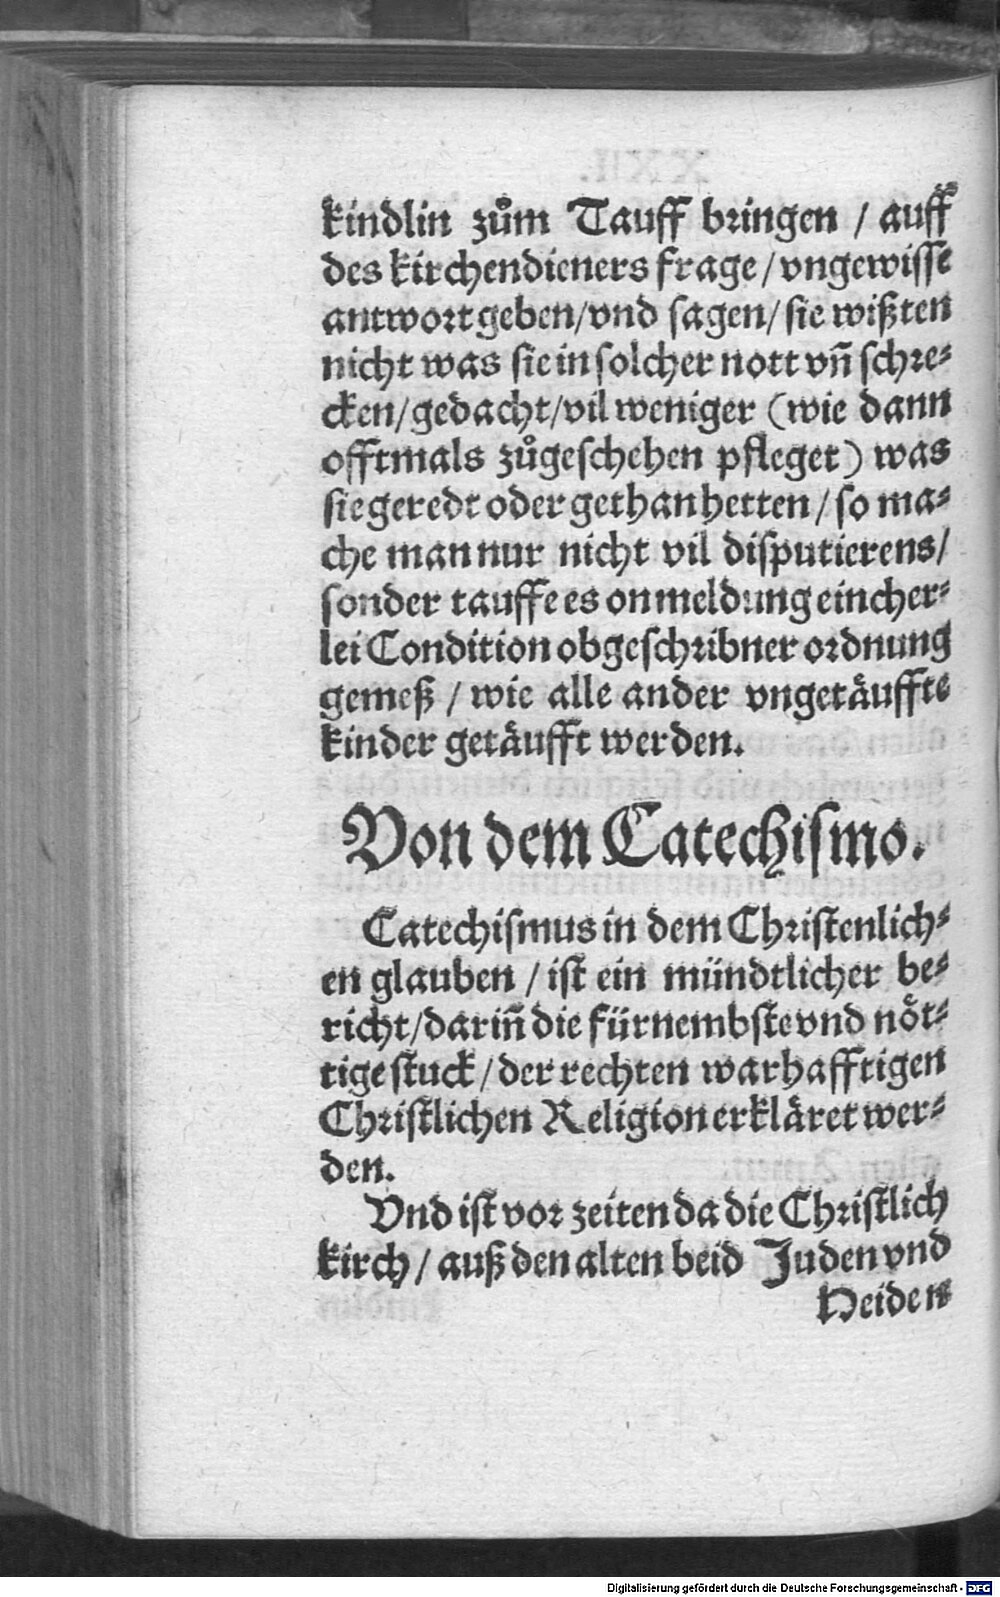 kindlin zům Tauff bringen / auff
des kirchendieners frage / vngewisse
antwort geben / vnd sagen / sie wißten
nicht was sie in solcher nott vñ schre⸗
cken / gedacht / vil weniger (wie dann
offtmals zůgeschehen pfleget) was
sie geredt oder gethan hetten / so ma⸗
che man nur nicht vil disputierens /
sonder tauffe es on meldung eincher⸗
lei Condition obgeschribner ordnung
gemeß / wie alle ander vngetäuffte
kinder getäufft werden.
Von dem Catechismo.
Catechismus in dem Christenlich⸗
en glauben / ist ein mündtlicher be⸗
richt / dariñ die fürnembste vnd nöt⸗
tige stuck / der rechten warhafftigen
Christlichen Religion erkläret wer⸗
den.
Vnd ist vor zeiten da die Christlich
kirch / auß den alten beid Juden vnd
Heiden
Digitalisierung gefördert durch die Deutsche Forschungsgemeinschaft - DFG